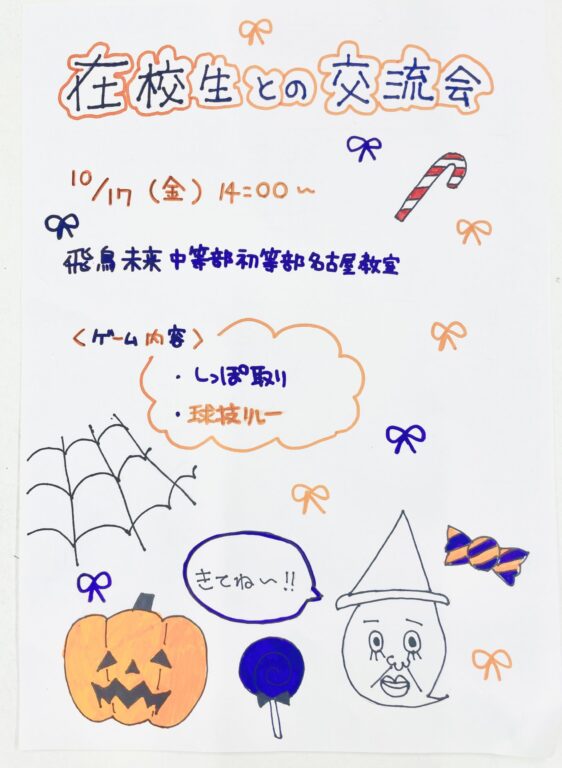 在校生との交流会
10/17(金)14:00~
飛鳥未来中等部初等部名古屋教室
<ゲーム内容>
・しっぽ取り
・球技リレー
きてね~!!